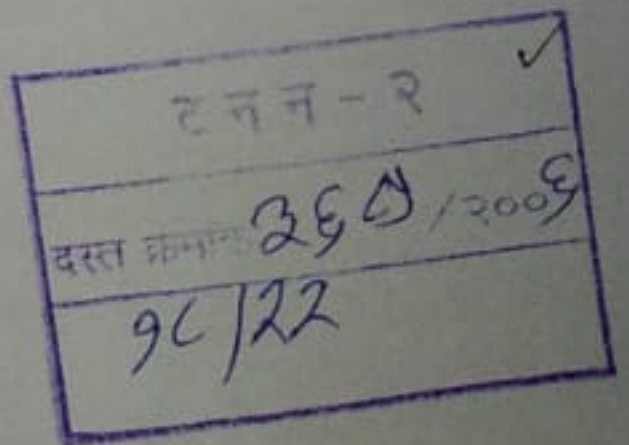 ट न न - २
दस्त क्रमांक ३६७ /२००६
१८/२२